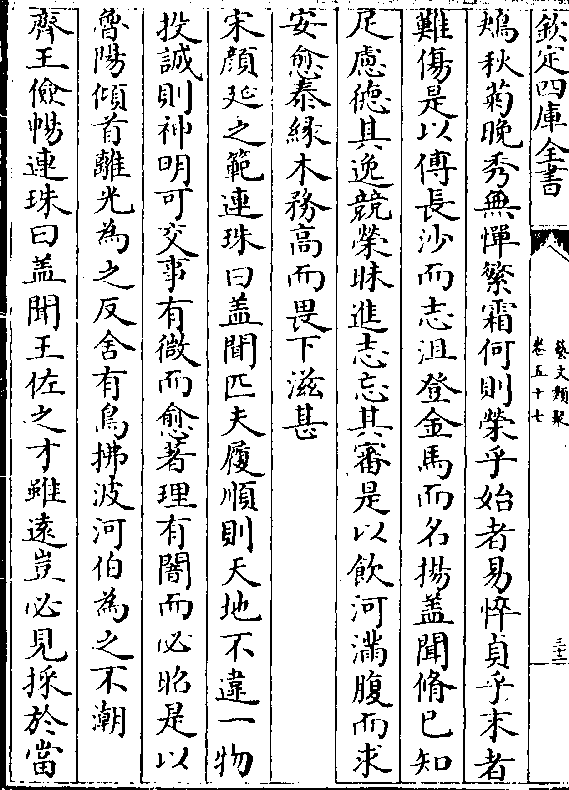 欽定四庫全書
藝文類聚
卷五十七
三十二
鴂秋菊晚秀無憚繁霜何則榮乎始者易悴貞乎末者
難傷是以傅長沙而志沮登金馬而名揚蓋聞脩己知
足慮德其逸競榮昧進志忘其審是以飲河滿腹而求
安愈泰緣木務高而畏下滋甚
宋顔延之範連珠曰蓋聞匹夫履順則天地不違一物
投誠則神明可交事有微而愈著理有闇而必昭是以
魯陽傾首離光為之反舍有鳥拂波河伯為之不潮
齊王儉暢連珠曰蓋聞王佐之才雖遠豈必見採於當